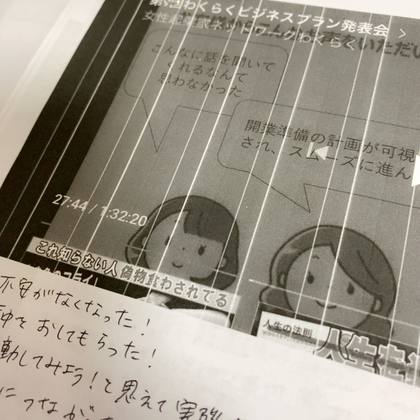 わくらくビジネスプラン発表会
こんなに話を聞いて
くれるなんて
思わなかった
開業準備の計画が可視
され、スムーズに進ん
27:44 / 1:32:20
これ知らない人偽物食わされてる
人生の法則
不安がなくなった！
をおしてもらった！
動してみよう！と思えて実践
につなが